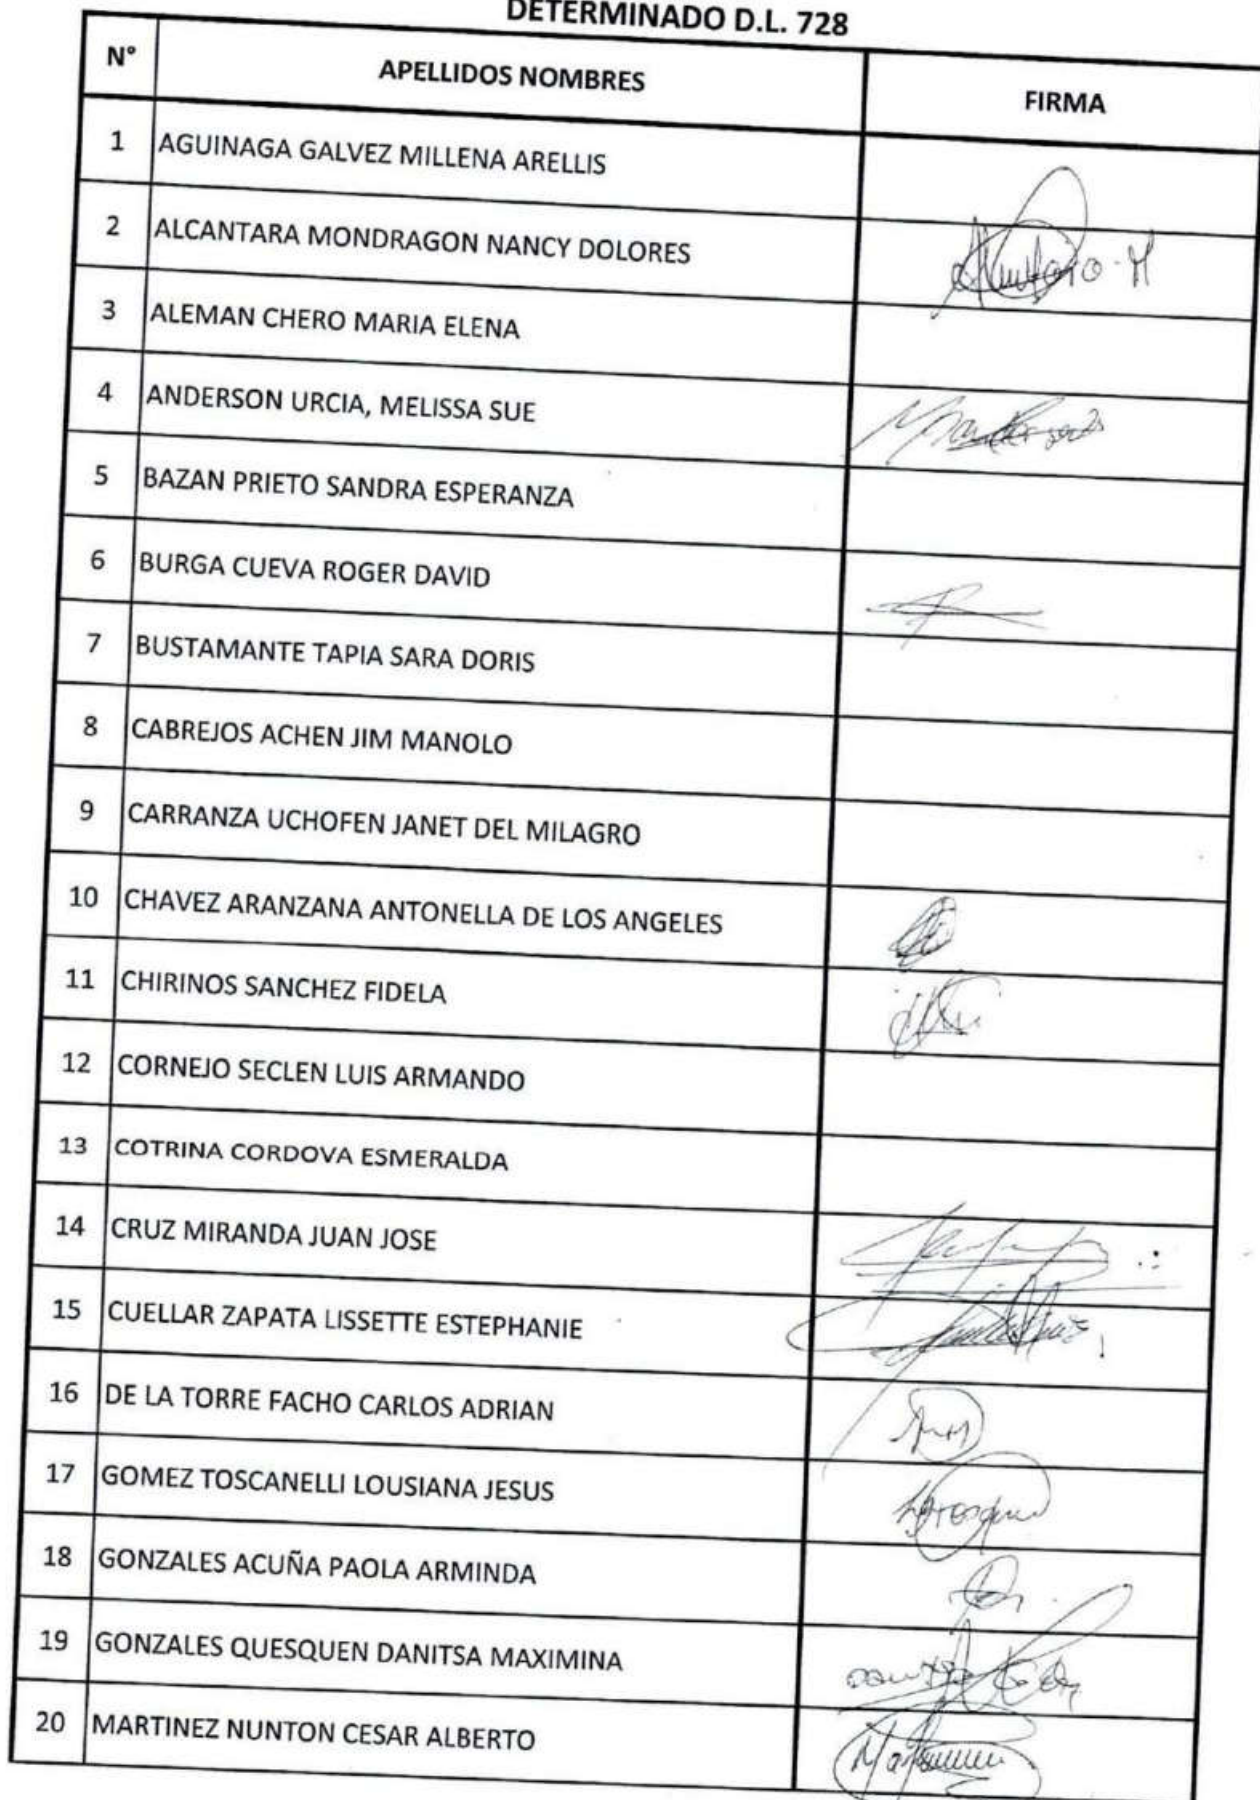 DETERMINADO D.L. 728
N° APELLIDOS NOMBRES FIRMA
1 AGUINAGA GALVEZ MILLENA ARELLIS
2 ALCANTARA MONDRAGON NANCY DOLORES
3 ALEMAN CHERO MARIA ELENA
4 ANDERSON URCIA, MELISSA SUE
5 BAZAN PRIETO SANDRA ESPERANZA
6 BURGA CUEVA ROGER DAVID
7 BUSTAMANTE TAPIA SARA DORIS
8 CABREJOS ACHEN JIM MANOLO
9 CARRANZA UCHOFEN JANET DEL MILAGRO
10 CHAVEZ ARANZANA ANTONELLA DE LOS ANGELES
11 CHIRINOS SANCHEZ FIDELA
12 CORNEJO SECLEN LUIS ARMANDO
13 COTRINA CORDOVA ESMERALDA
14 CRUZ MIRANDA JUAN JOSE
15 CUELLAR ZAPATA LISSETTE ESTEPHANIE
16 DE LA TORRE FACHO CARLOS ADRIAN
17 GOMEZ TOSCANELLI LOUSIANA JESUS
18 GONZALES ACUÑA PAOLA ARMINDA
19 GONZALES QUESQUEN DANITSA MAXIMINA
20 MARTINEZ NUNTON CESAR ALBERTO